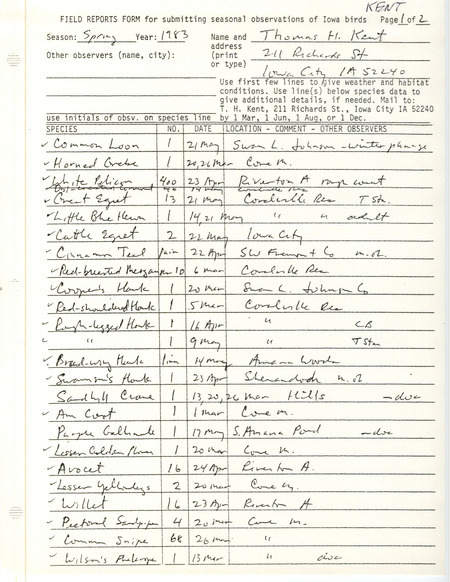 KENT
FIELD REPORTS FORM for submitting seasonal observations of Iowa birds Page 1 of 2
Season: Spring Year: 1983 Name and Thomas H. Kent
address
Other observers (name, city): (print 211 Richards St
or type) Iowa City IA 52240
Use first few lines to give weather and habitat
conditions. Use line(s) below species data to
give additional details, if needed. Mail to:
T. H. Kent, 211 Richards St., Iowa City IA 52240
use initials of obsv. on species line by 1 Mar, 1 Jun, 1 Aug, or 1 Dec.
SPECIES NO. DATE LOCATION - COMMENT - OTHER OBSERVERS
✓ Common Loon 1 21 May Swan L. Johnson - winter plumage
✓ Horned Grebe 1 20,26 Mar Cone M.
✓ White Pelican 400 23 Apr Riverton A rough count
✓ Great Egret 13 21 May Coralville Res T Stn.
✓ Little Blue Heron 1 14,21 May " " adult
✓ Cattle Egret 2 22 May Iowa City
✓ Cinnamon Teal pair 22 Apr SW Fremont Co m.ob.
✓ Red-breasted Merganser 10 6 Mar Coralville Res
✓ Cooper's Hawk 1 20 Mar Swan L. Johnson Co
✓ Red-shouldered Hawk 1 5 Mar Coralville Res
✓ Rough-legged Hawk 1 16 Apr " CB
" " 1 9 May " T Stn
✓ Broad-wing Hawk 1 im 14 May Amana Woods
✓ Swainson's Hawk 1 23 Apr Shenandoah m.ob
Sandhill Crane 1 13,20,26 Mar Hills - doc
✓ Am Coot 1 1 Mar Cone M.
Purple Gallinule 1 17 May S. Amana Pond - doc
✓ Lesser Golden Plover 1 20 Mar Cone M.
✓ Avocet 16 24 Apr Riverton A.
✓ Lesser Yellowlegs 2 20 Mar Cone M.
✓ Willet 16 23 Apr Riverton A
✓ Pectoral Sandpiper 4 20 Mar Cone M.
✓ Common Snipe 68 26 Mar "
✓ Wilson's Phalarope 1 13 Mar " doc